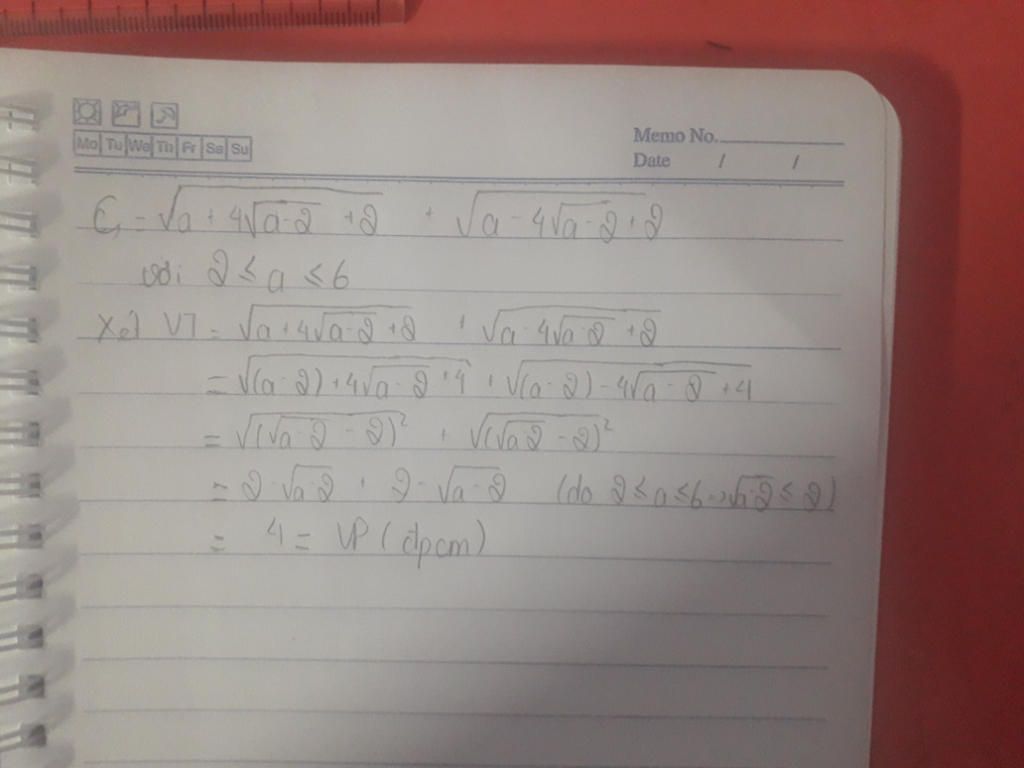 Mo Tu We Th Fr Sa Su
Memo No.
Date / /
C = √(a + 4√(a-2) + 2) + √(a - 4√(a-2) + 2)
với 2 ≤ a ≤ 6
Xét VT = √(a + 4√(a-2) + 2) + √(a - 4√(a-2) + 2)
= √((a-2) + 4√(a-2) + 4) + √((a-2) - 4√(a-2) + 4)
= √((√(a-2) - 2)²) + √((√(a-2) - 2)²)
= 2 - √(a-2) + 2 - √(a-2) (do 2 ≤ a ≤ 6 → √(a-2) ≤ 2)
= 4 = VP (dpcm)